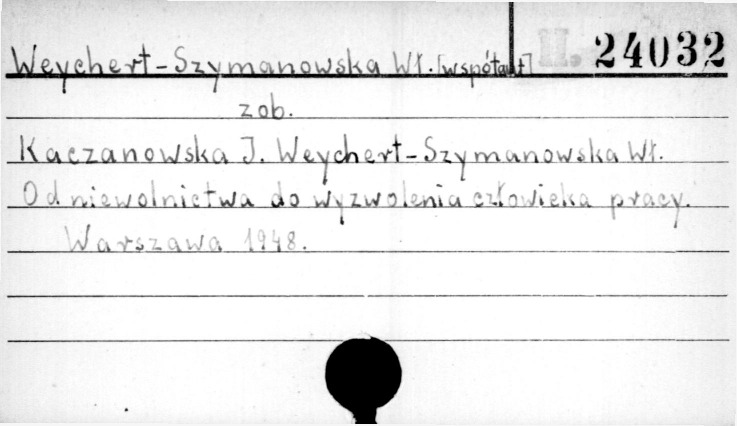 Weychert-Szymanowska Wł. [współaut] II. 24032
zob.
Kaczanowska J. Weychert-Szymanowska Wł.
Od niewolnictwa do wyzwolenia człowieka pracy.
Warszawa 1948.